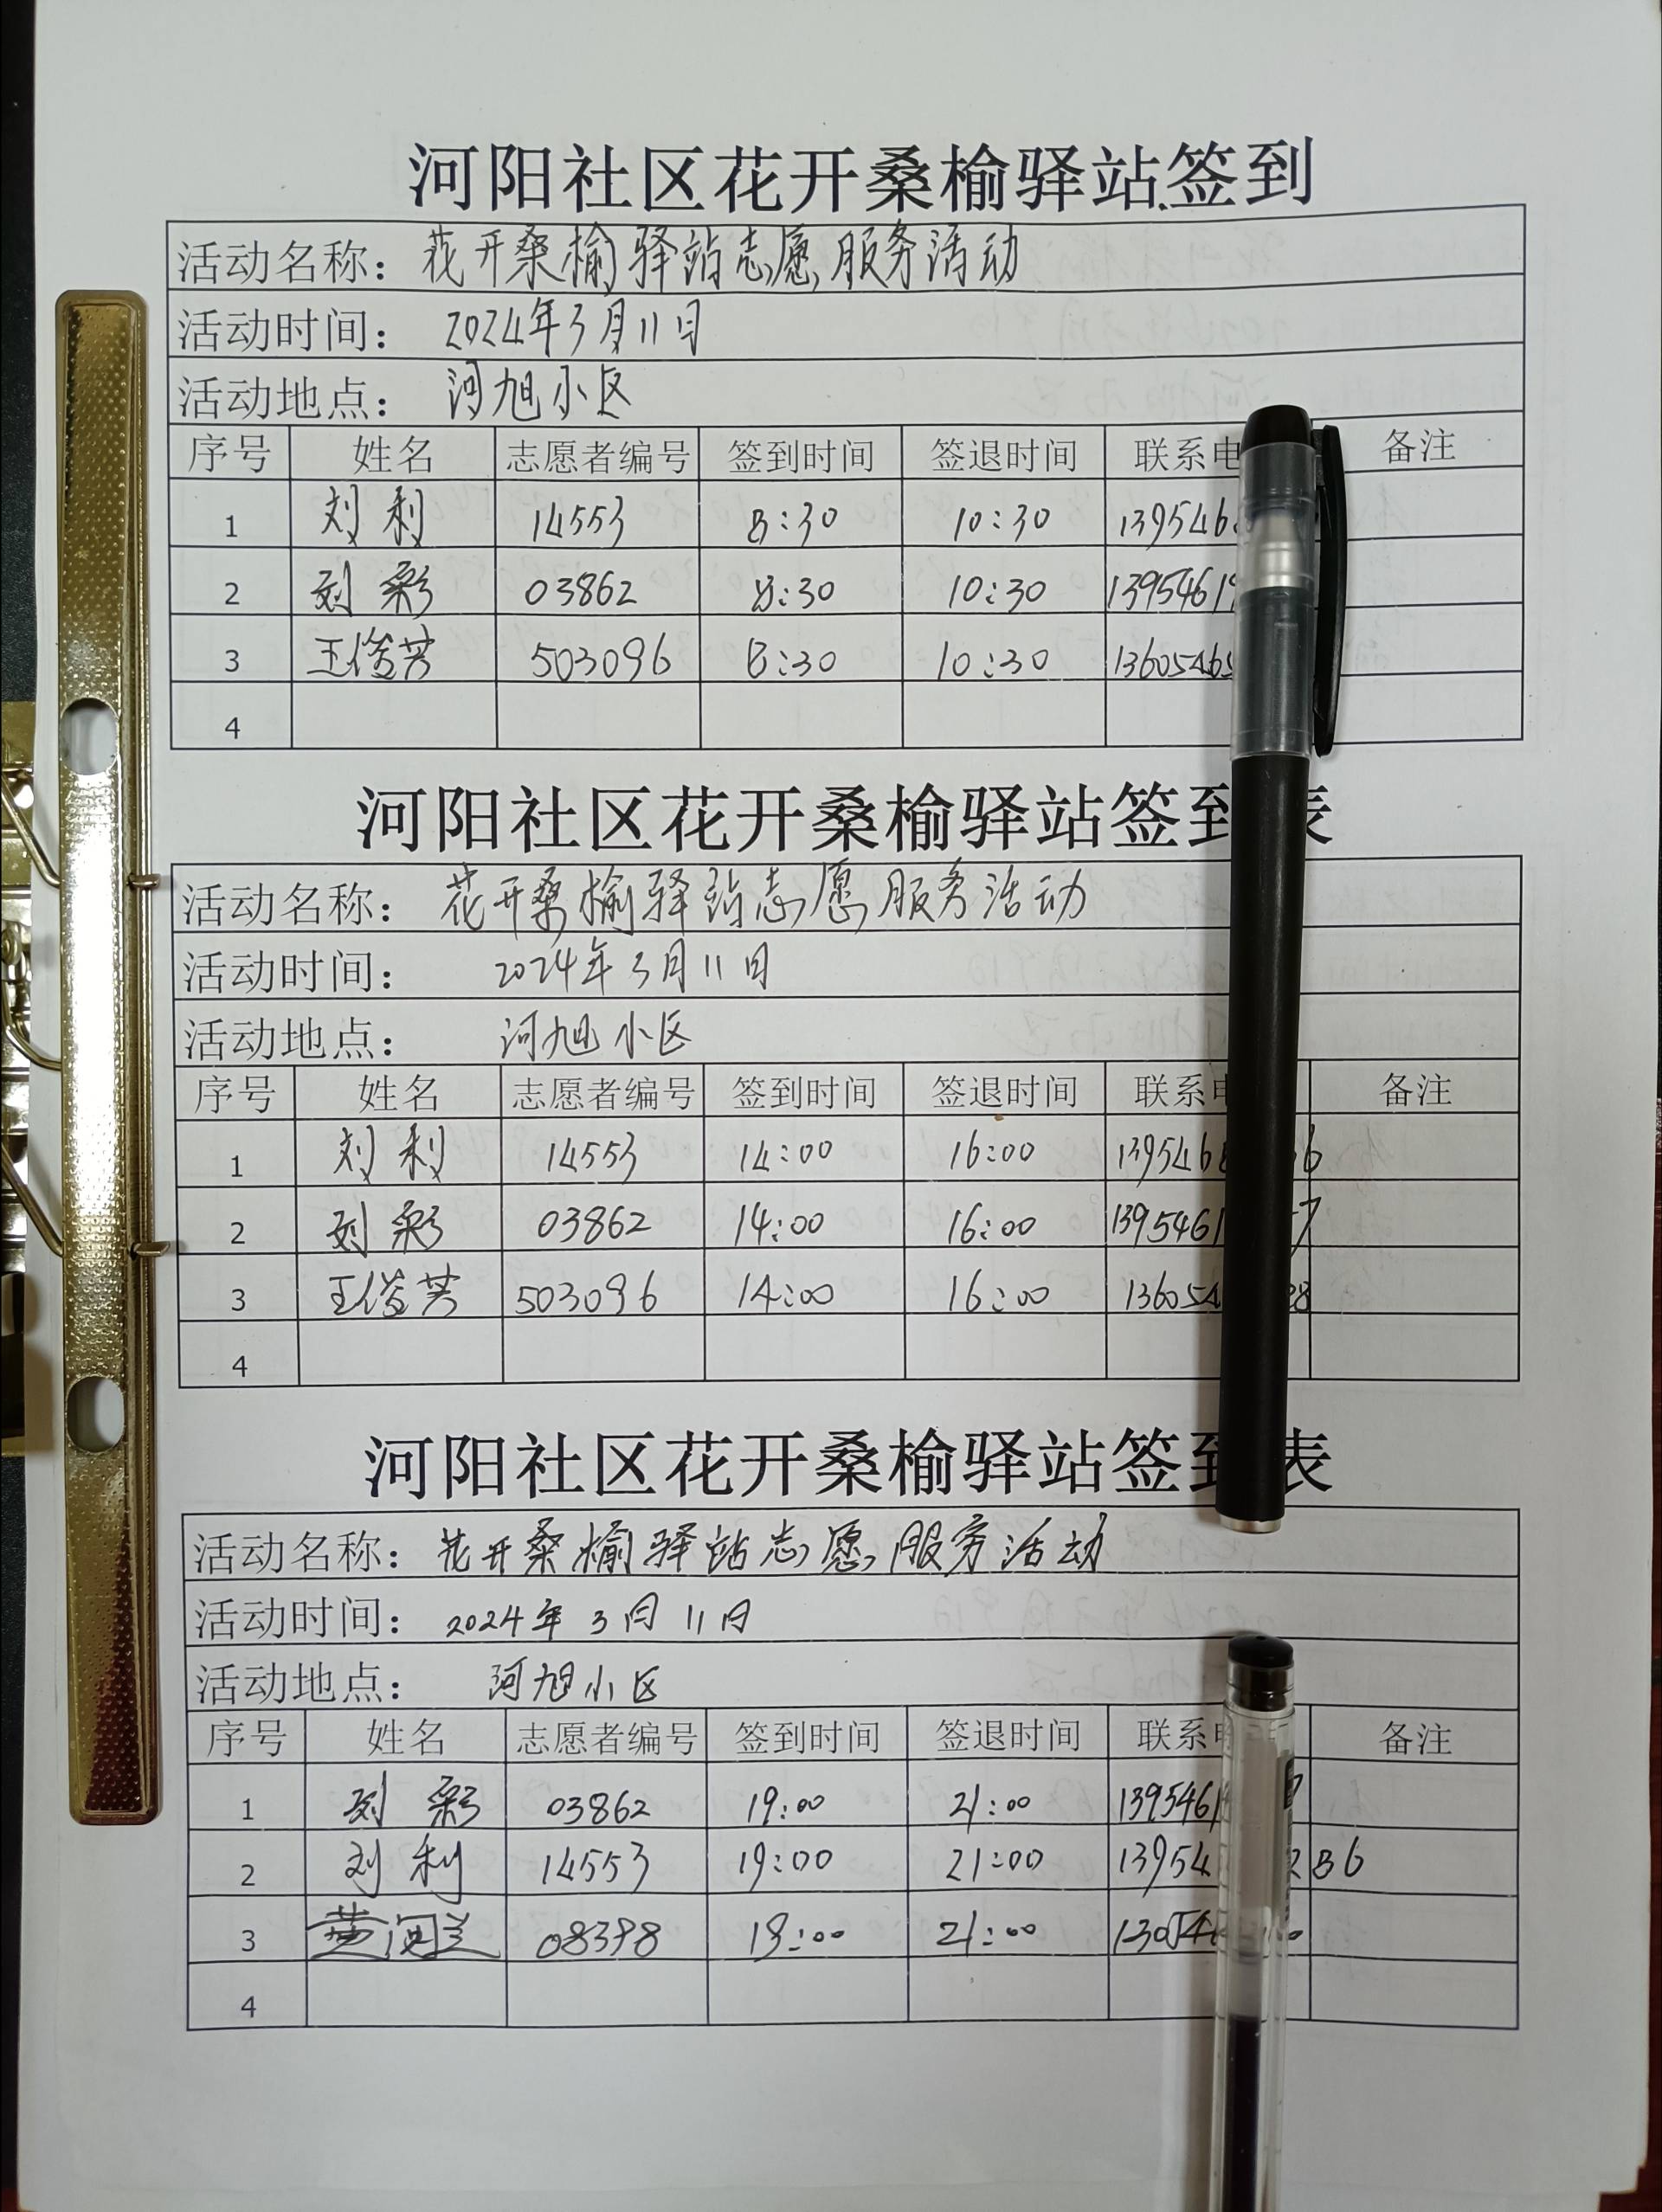 河阳社区花开桑榆驿站签到
活动名称: 花开桑榆驿站志愿服务活动
活动时间: 2024年3月11日
活动地点: 河旭小区
序号 姓名 志愿者编号 签到时间 签退时间 联系电 备注
1 刘利 14553 8:30 10:30 139546
2 刘彩 03862 8:30 10:30 1395461
3 王俊芳 503096 8:30 10:30 1360546
4
河阳社区花开桑榆驿站签到表
活动名称: 花开桑榆驿站志愿服务活动
活动时间: 2024年3月11日
活动地点: 河旭小区
序号 姓名 志愿者编号 签到时间 签退时间 联系电 备注
1 刘利 14553 14:00 16:00 139546 6
2 刘彩 03862 14:00 16:00 1395461 7
3 王俊芳 503096 14:00 16:00 13605 88
4
河阳社区花开桑榆驿站签到表
活动名称: 花开桑榆驿站志愿服务活动
活动时间: 2024年3月11日
活动地点: 河旭小区
序号 姓名 志愿者编号 签到时间 签退时间 联系 备注
1 刘彩 03862 19:00 21:00 1395461 7
2 刘利 14553 19:00 21:00 13954 286
3 黄闰兰 08398 19:00 21:00 13054
4